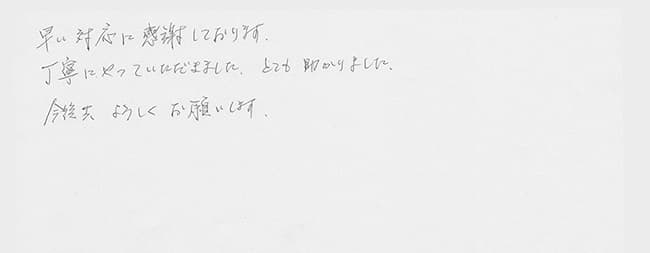 早い対応に感謝しております.
丁寧にやっていただきました. とても助かりました.
今後共 よろしく お願いします.